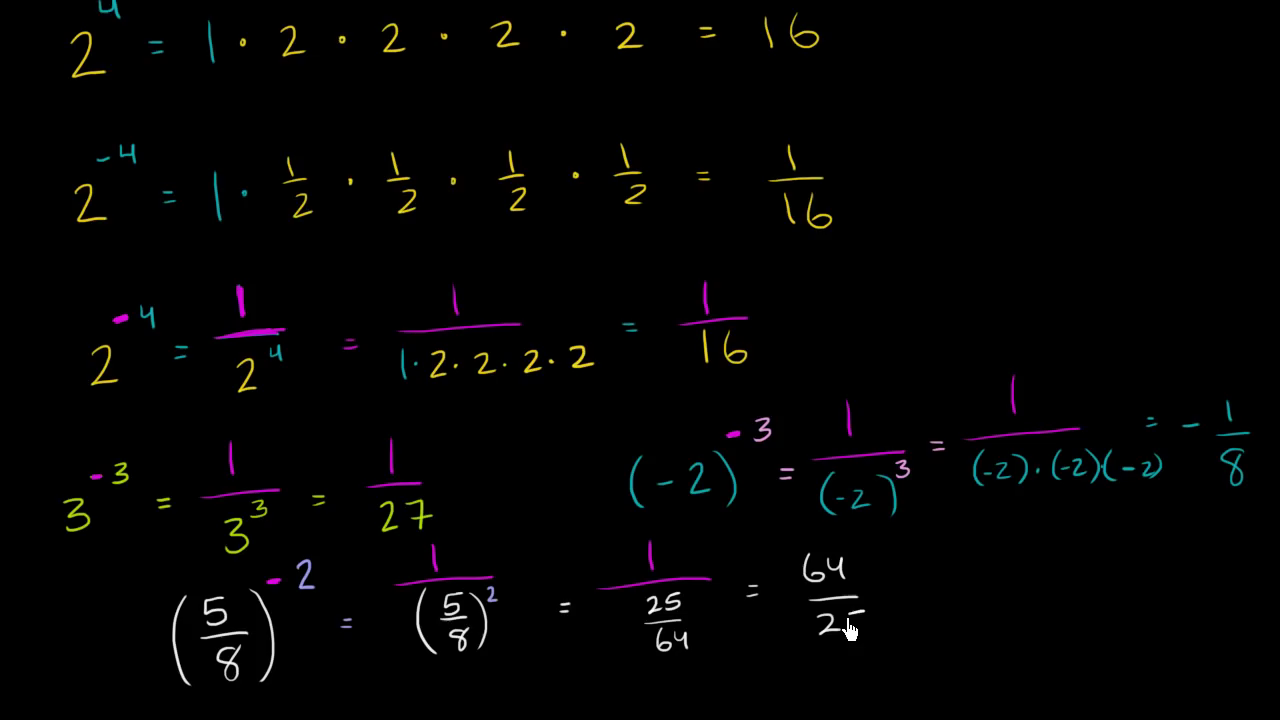 2^4 = 1 · 2 · 2 · 2 · 2 = 16
2^-4 = 1 · 1/2 · 1/2 · 1/2 · 1/2 = 1/16
2^-4 = 1/2^4 = 1/(1·2·2·2·2) = 1/16
3^-3 = 1/3^3 = 1/27
(-2)^-3 = 1/(-2)^3 = 1/((-2)·(-2)·(-2)) = -1/8
(5/8)^-2 = 1/(5/8)^2 = 1/(25/64) = 64/25